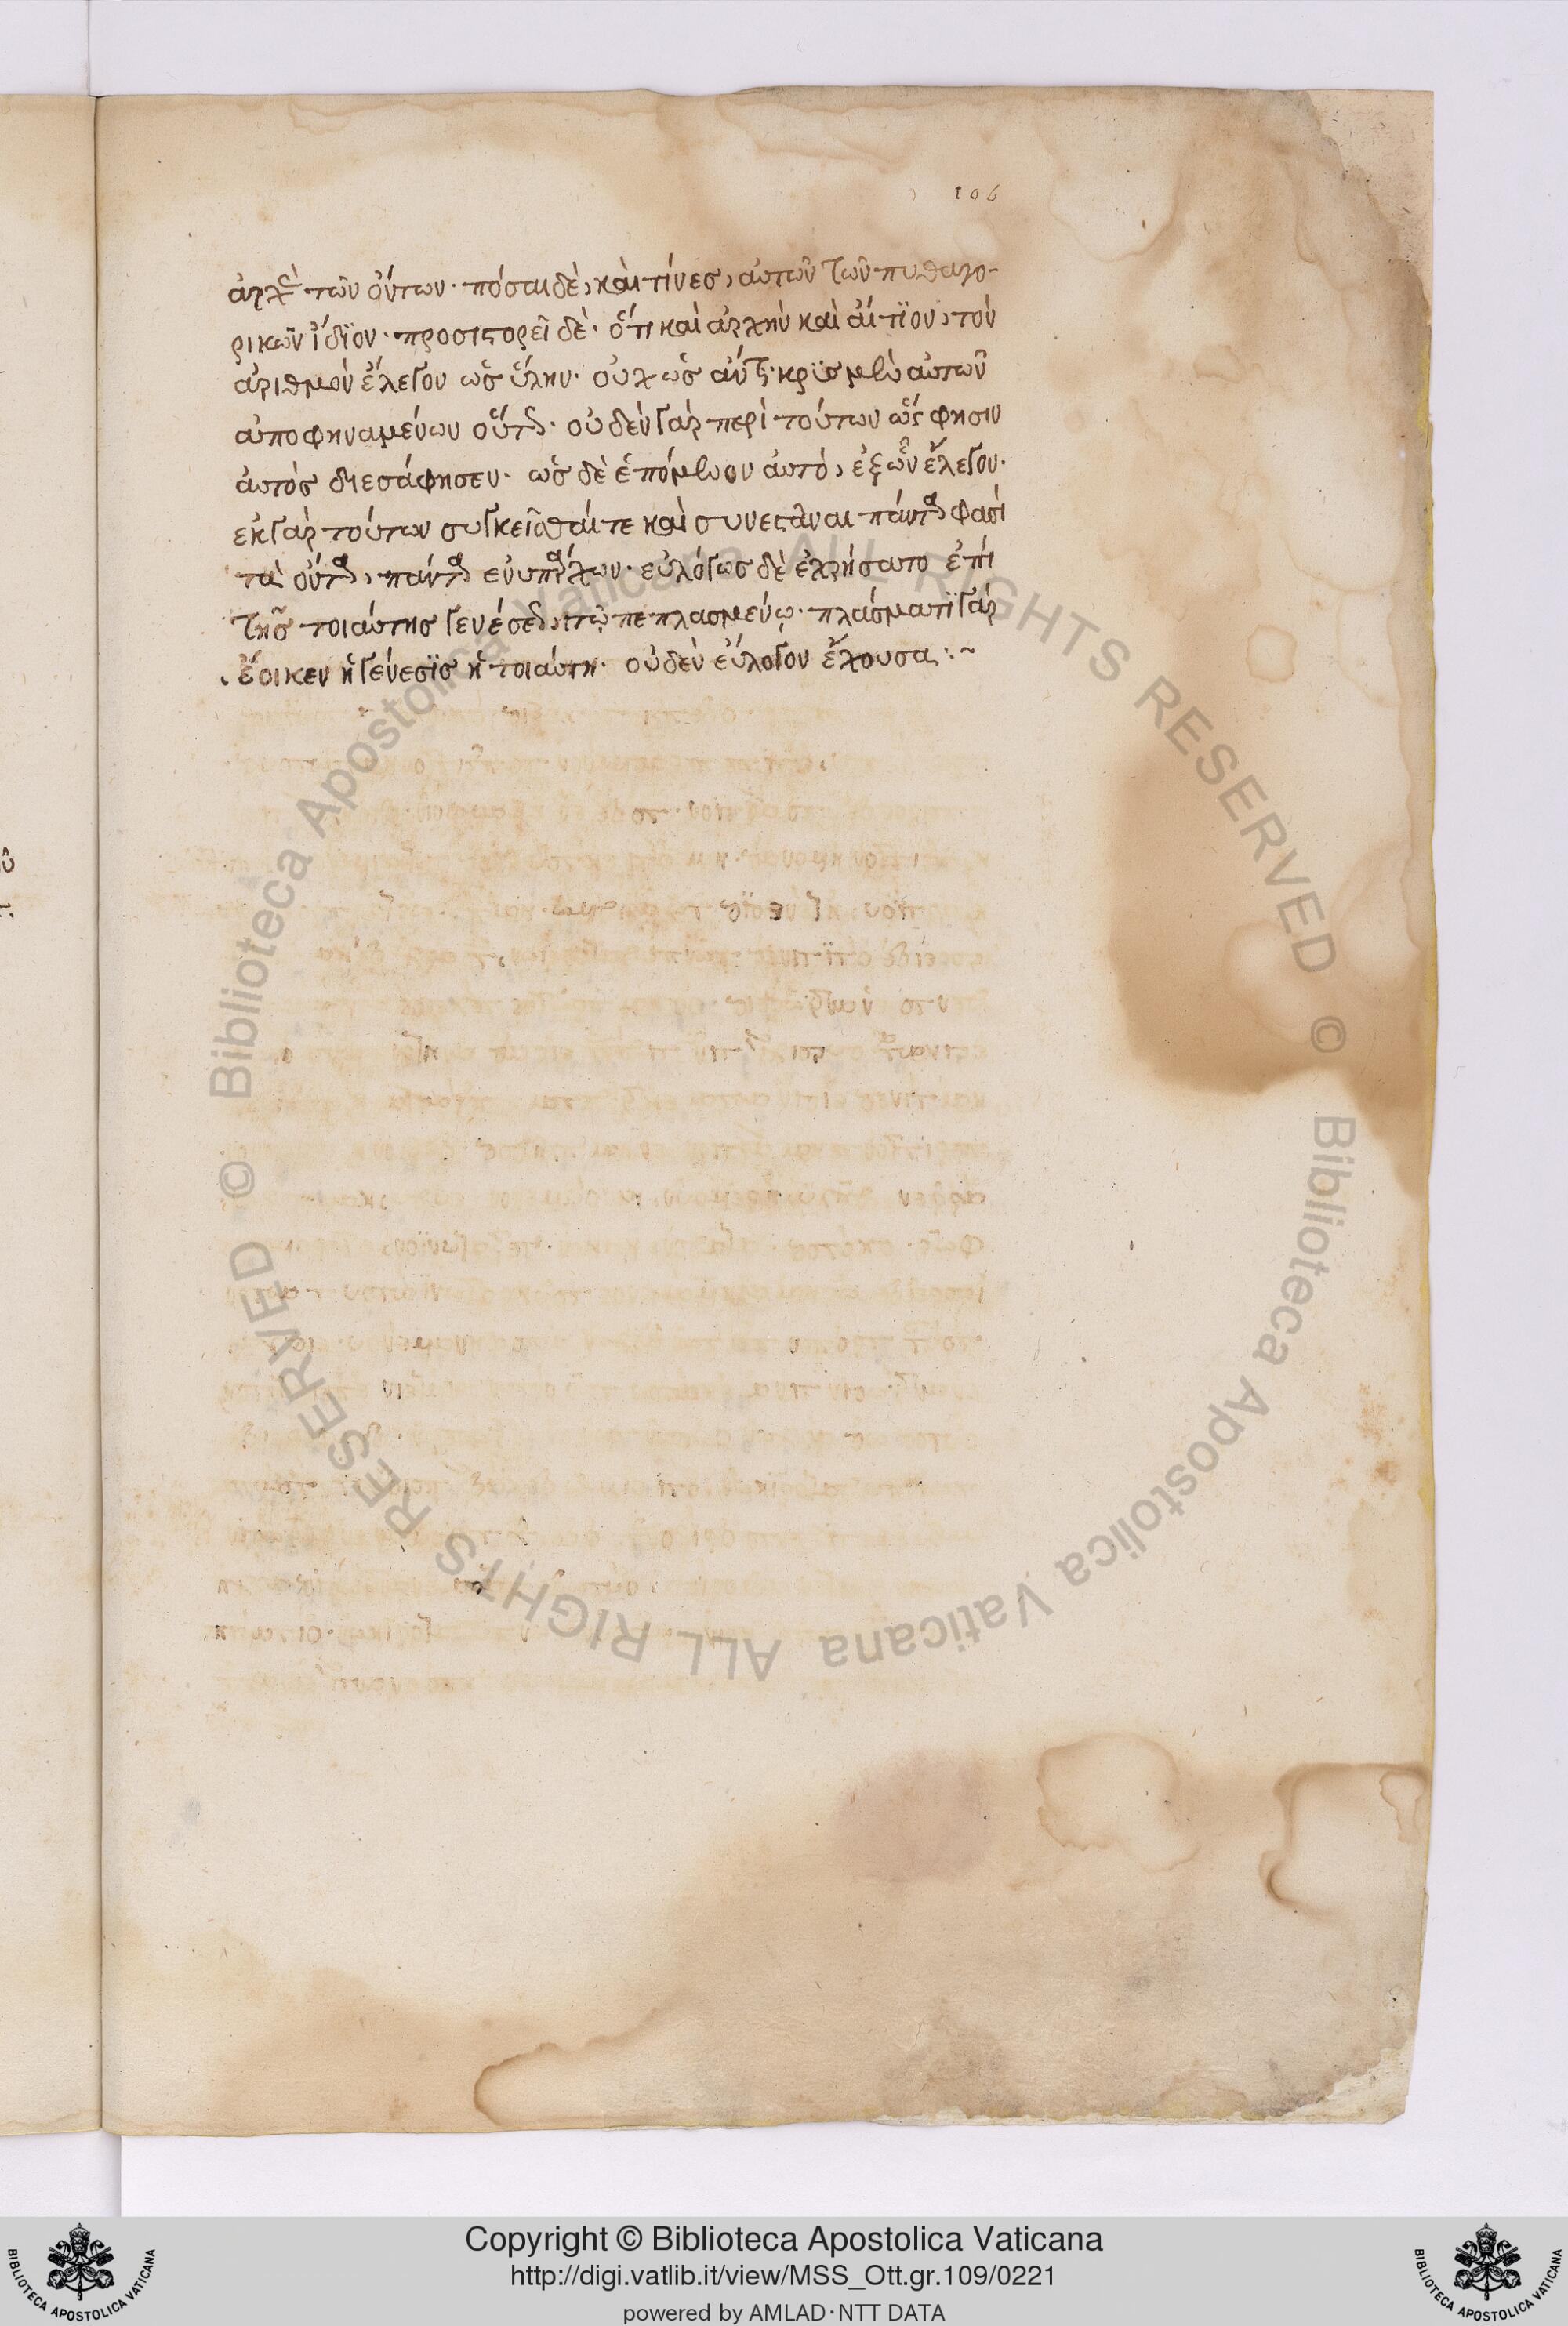 106
ἀρχὰς τῶν ὄντων· πόσαι δὲ, καὶ τίνες, αὐτῶν τῶν πυθαγο-
ρικῶν ἴδϊον· προσιστορεῖ δὲ· ὅτι καὶ ἀρχὴν καὶ αἴτϊον, τὸν
ἀριθμὸν ἔλεγον ὡς ὕλην· οὐχ ὡς αὐτῶν
ἀποφηναμένων οὕτως· οὐδὲν γὰρ περὶ τούτων ὥς φησιν
αὐτὸς διεσάφησεν· ὡς δὲ ἑπόμενον αὐτὸ, ἐξ ὧν ἔλεγον·
ἐκ γὰρ τούτων συγκεῖσθαί τε καὶ συνεστάναι πάντα φασὶ
τὰ ὄντα, πάντα ἐνυπαρχόντων· εὐλόγως δὲ ἐχρήσατο ἐπὶ
τῆς τοιαύτης γενέσεως, τῷ πεπλασμένῳ· πλάσματϊ γὰρ
ἔοικεν ἡ γένεσϊς ἡ τοιαύτη· οὐδὲν εὔλογον ἔχουσα:~
© Biblioteca Apostolica Vaticana ALL RIGHTS RESERVED © Biblioteca Apostolica Vaticana ALL RIGHTS RESERVED
BIBLIOTECA APOSTOLICA VATICANA
Copyright © Biblioteca Apostolica Vaticana
http://digi.vatlib.it/view/MSS_Ott.gr.109/0221
powered by AMLAD·NTT DATA
BIBLIOTECA APOSTOLICA VATICANA